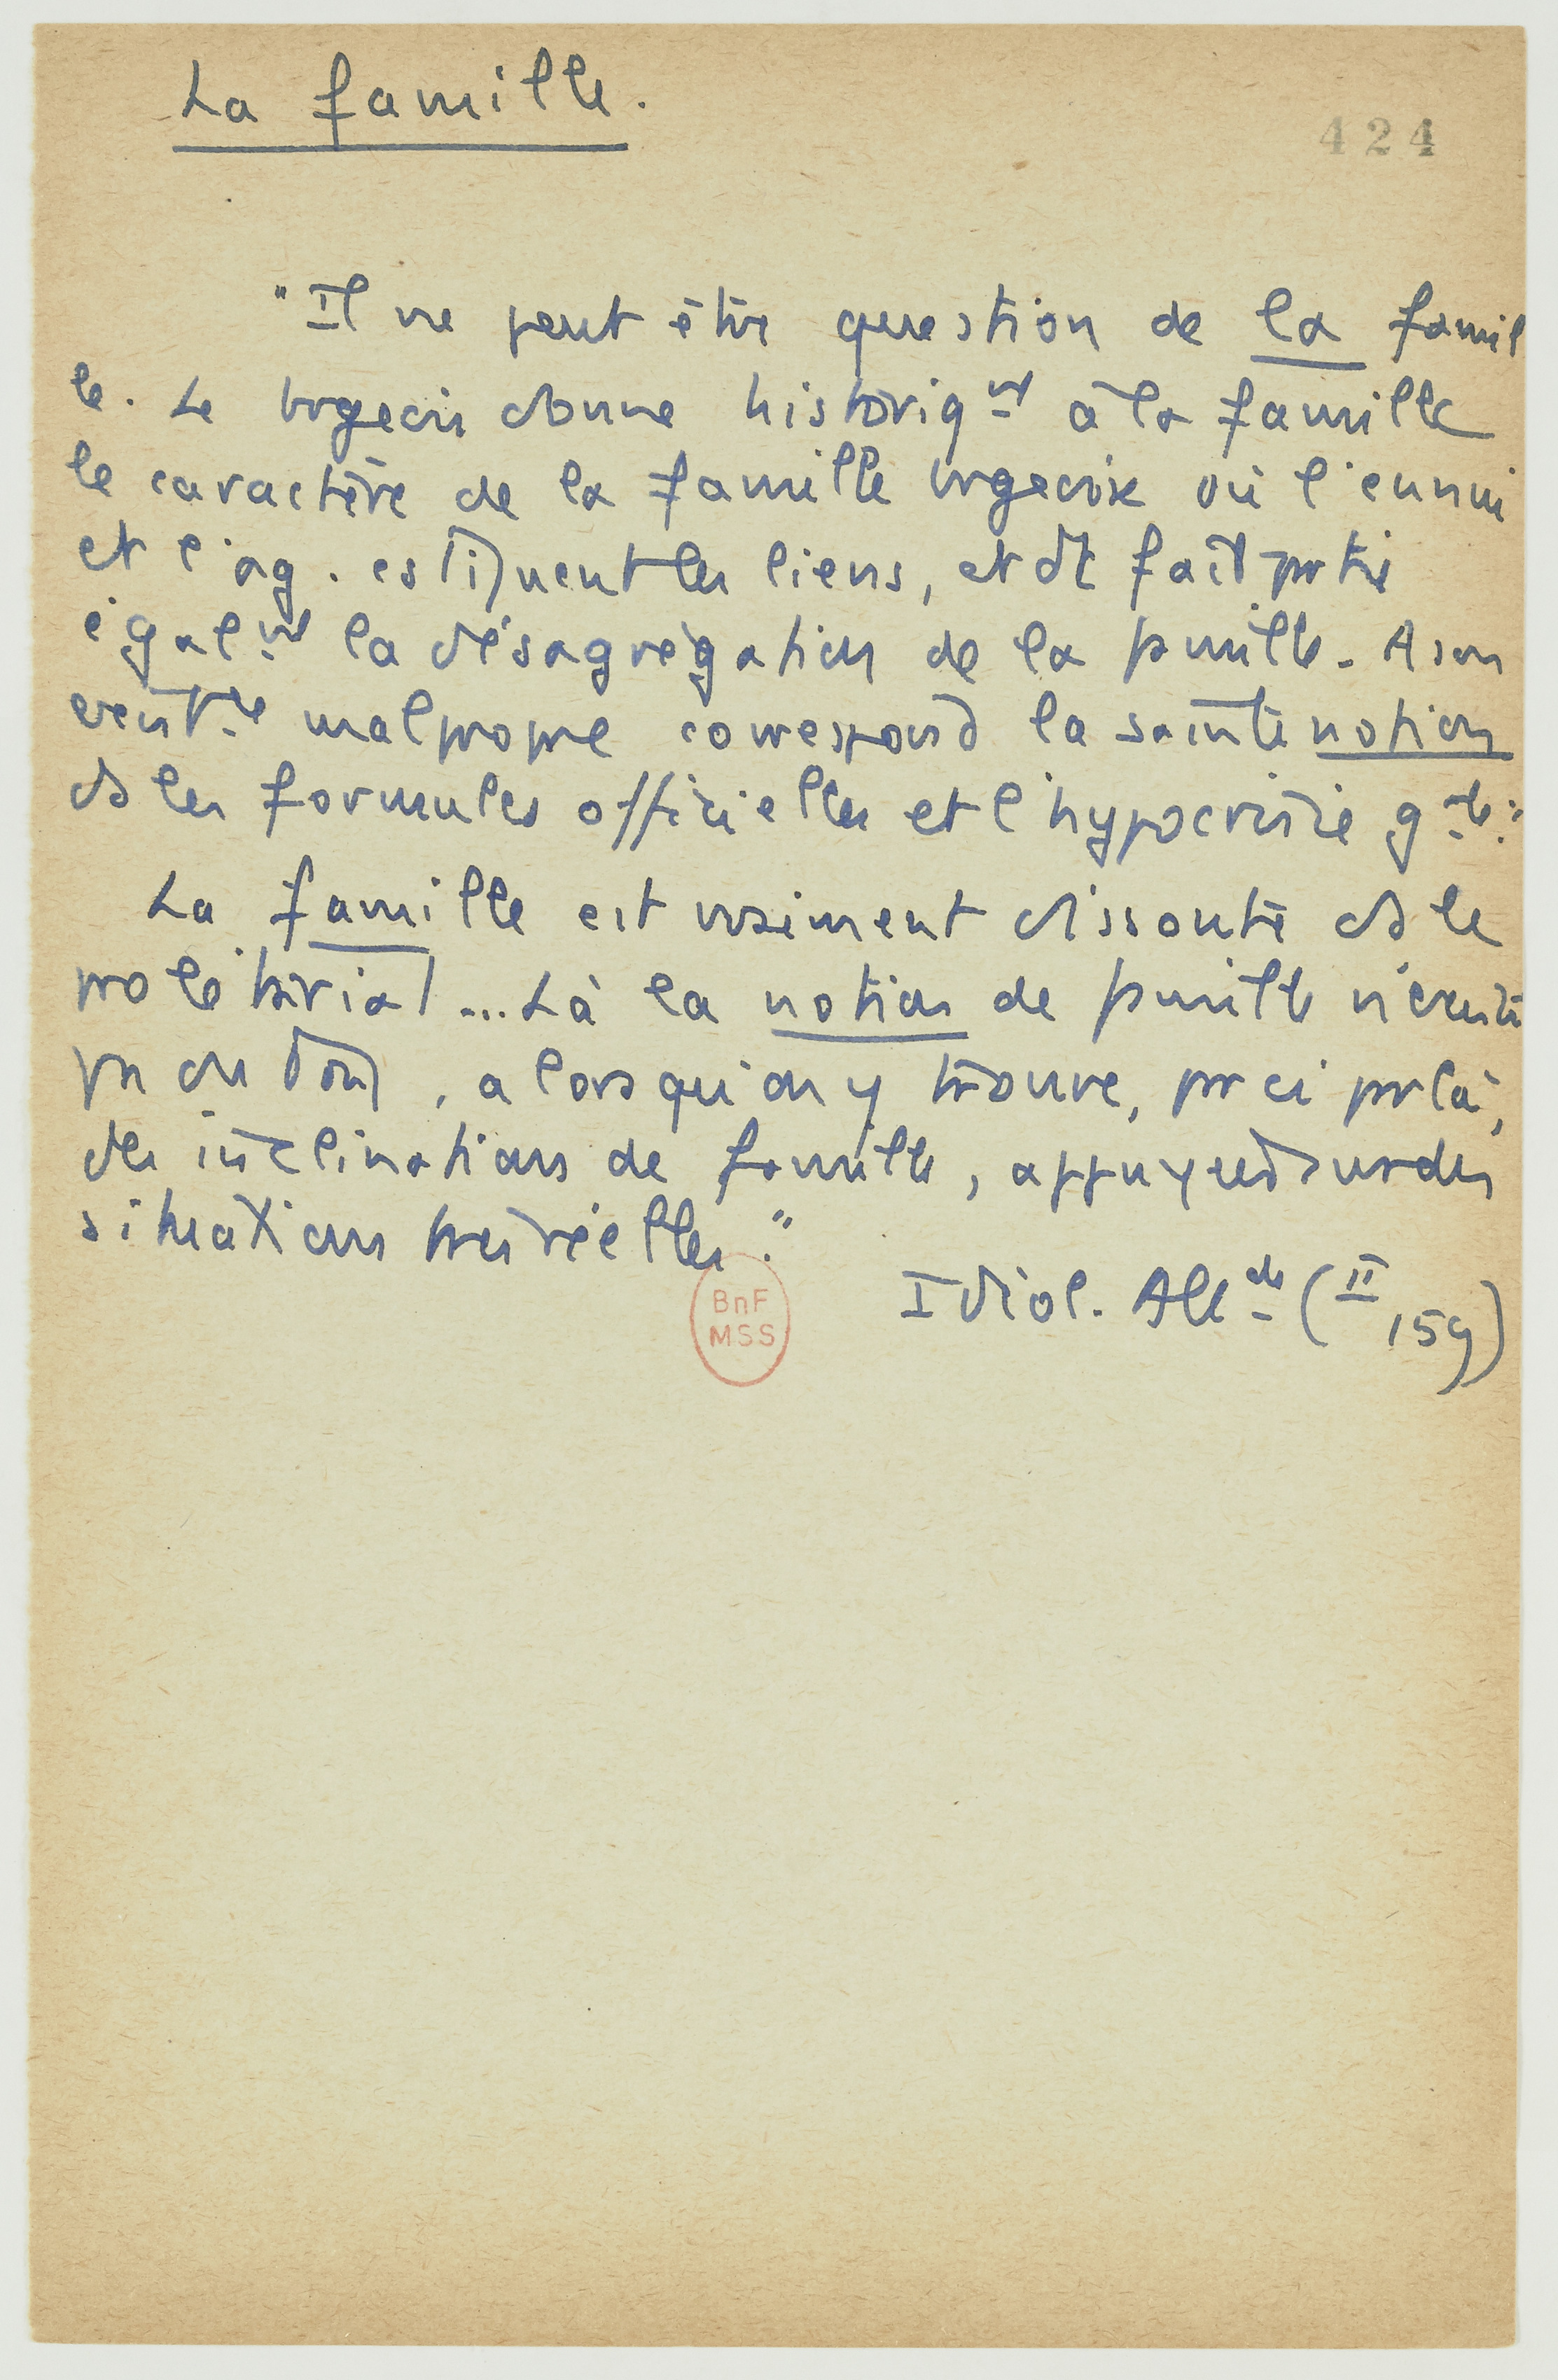 La famille.
424
"Il ne peut être question de la famil
le. Le brgeois donne historiqnt à la famille
le caractère de la famille brgeoise où l'ennui
et l'ag. constituent les liens, et dt fait prtie
égalnt la désagrégation de la famille. A son
malpropre correspond la sainte notion
ds les formules officielles et l'hypocrisie gle."
La famille est vraiment dissoute ds le
prolétariat... Là la notion de famille n'existe
pas du tout, alors qu'on y trouve, pr ci pr là,
des inclinations de famille, appuyées sur des
situations très réelles."
Idéol. Allde (II 159)
BnF
MSS